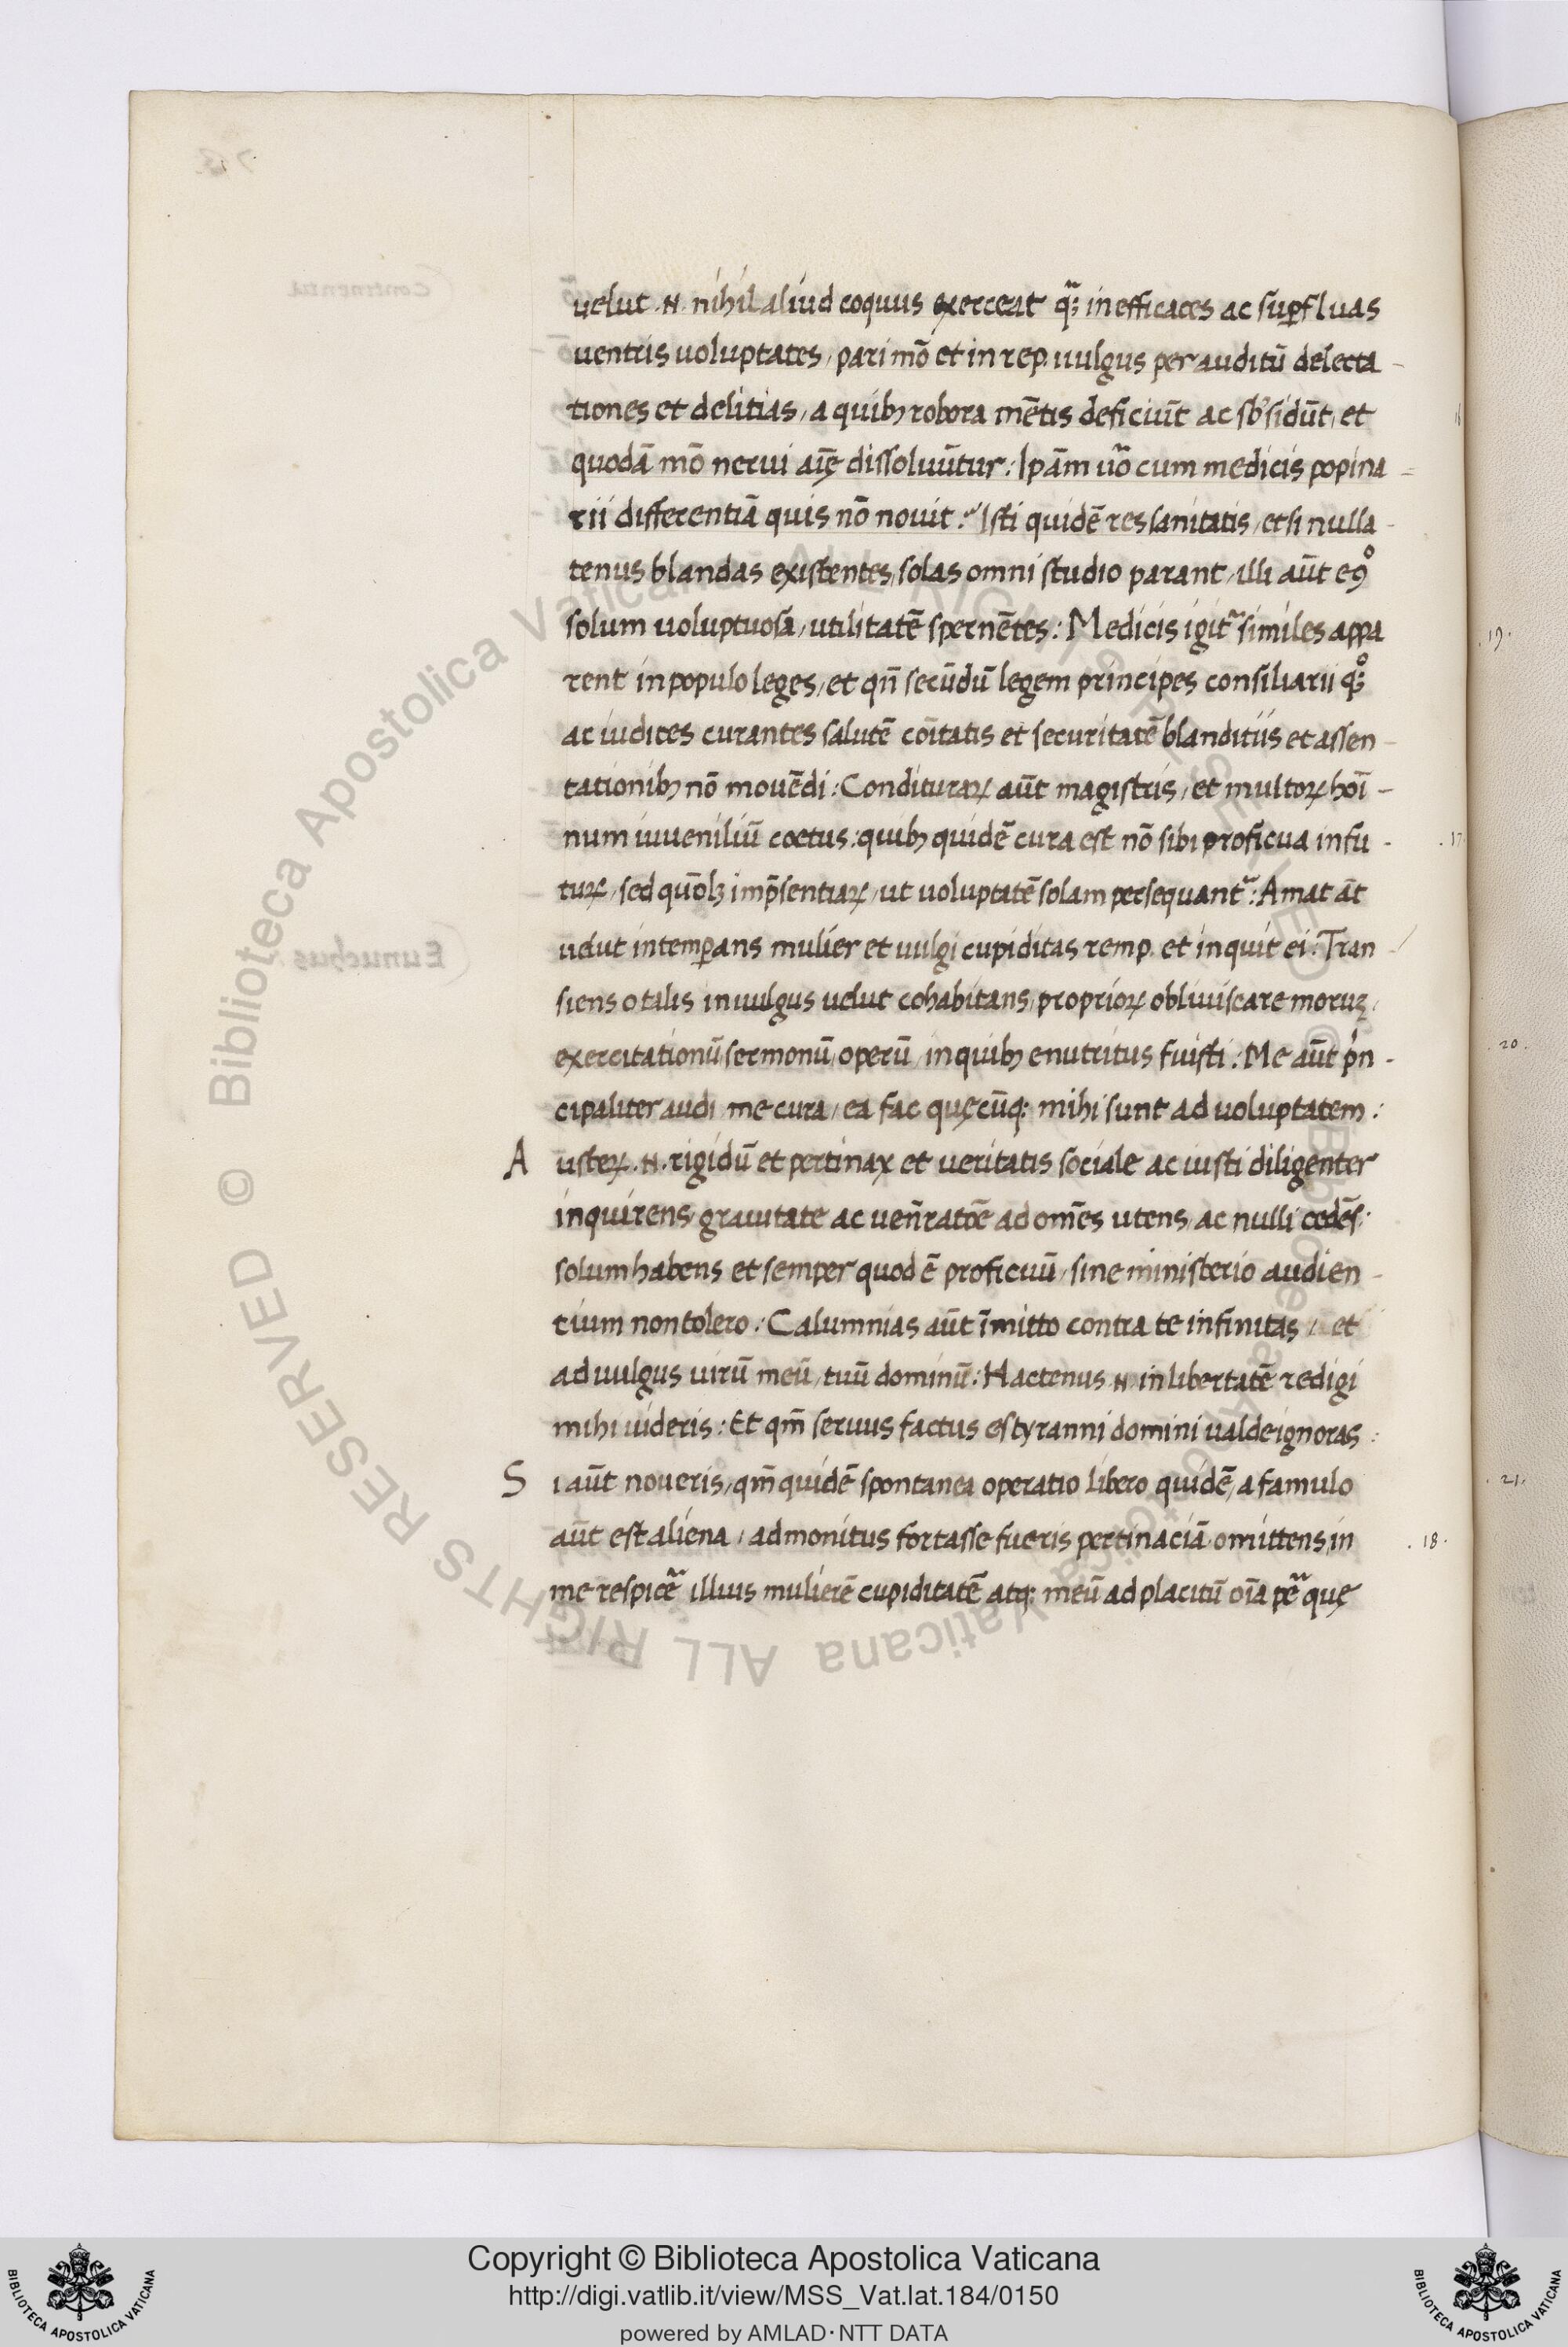 uelut .N. nihil aliud coquus exerceat qᷓ; inefficaces ac suꝑfluas
uentris uoluptates, pari mō et in rep. uulgus per auditū delecta-
tiones et delitias, a quibꝫ robora mētis deficiūt ac sb'sidūt, et
quodā mō nerui aīę dissoluūtur: Ipām uo᷒ cum medicis popina-
rii differentiā quis nō nouit: Isti quidē res sanitatis, etsi nulla-
tenus blandas existentes, solas omni studio parant, illi aūt
solum uoluptuosa, utilitatē spernētes: Medicis igit᷒ similes appa
rent in populo leges, et qn̄ secūdū legem principes consiliarii qͦ;
ac iudices curantes salutē cōitatis et securitatē blanditiis et assen-
tationibꝫ nō mouēdi: Condituraꝝ aūt magistris, et multoꝝ hoī-
num iuueniliū coetus: quibꝫ quidē cura est nō sibi proficua in fu-
tuꝝ, sed imp̄sentiaꝝ, ut uoluptatē solam persequant᷒: Amat āt
uelut intemꝑans mulier et uulgi cupiditas remp. et inquit ei: Tran-
siens o talis in uulgus uelut cohabitans, proprioꝝ obliuiscare moruꝫ,
exercitationū sermonū, operū, in quibꝫ enutritus fuisti: Me aūt pⁱn-
cipaliter audi me cura, ea fac quęcūq; mihi sunt ad uoluptatem:
A usteꝝ .N. rigidū et pertinax et ueritatis sociale ac iusti diligenter
inquirens, grauitate ac ueñratōe ad omēs utens, ac nulli cedēs:
solum habens et semper quod ē proficuū, sine ministerio audien-
tium non tolero: Calumnias aūt īmitto contra te infinitas, et
ad uulgus uirū meū, tuū dominū: Hactenus .N. in libertatē redigi
mihi uideris: Et qm̄ seruus factus es tyranni domini ualde ignoras:
S i aūt noueris, qm̄ quidē spontanea operatio libero quidē, a famulo
aūt est aliena, admonitus fortasse fueris pertinaciā omittens in
me respicē᷒ illius mulierē cupiditatē atq; meū ad placitū oīa quę
.17.
.18.
.19.
.20.
.21.
Copyright © Biblioteca Apostolica Vaticana
http://digi.vatlib.it/view/MSS_Vat.lat.184/0150
powered by AMLAD·NTT DATA
BIBLIOTECA APOSTOLICA VATICANA
BIBLIOTECA APOSTOLICA VATICANA
© Biblioteca Apostolica Vaticana ALL RIGHTS RESERVED
© Biblioteca Apostolica Vaticana ALL RIGHTS RESERVED